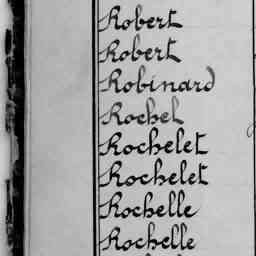 Robert
Robert
Robinard
Rochel
Rochelet
Rochelet
Rochelle
Rochelle